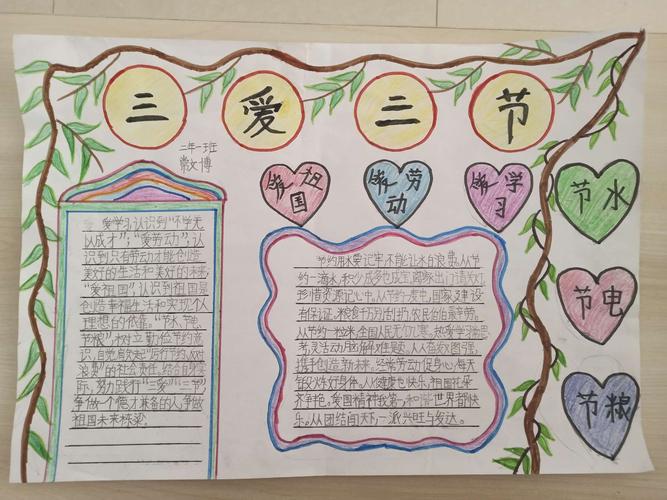 三爱三节
二年一班
常文博
爱祖国
爱劳动
爱学习
节水
节电
节粮
爱学习,认识到“不学无
以成才”;“爱劳动”,认
识到只有劳动才能创造
美好的生活和美好的未来;
“爱祖国”,认识到祖国是
创造幸福生活和实现个人
理想的依靠。“节水、节电、
节粮”,树立勤俭节约意
识,自觉肩负起“厉行节约、反对
浪费”的社会责任。结合自身实
际,努力践行“三爱”“三节”,
争做一个德才兼备的人,争做
祖国未来栋梁。
节约用水要记牢,不能让水白浪费。从节
约一滴水,积少成多也成宝。阖家出门请关灯,
珍惜资源记心中。从节约一度电,国家建设
有保证。粮食千万别扔,农民伯伯最辛劳。
从节约一粒米,全国人民无饥寒。热爱学习勤思
考,灵活动脑解难题。人人奋发图强,
携手创造新未来。经常劳动促身心,每天
锻炼好身体。从健康也快乐,祖国花朵
齐争艳。爱国精神我第一,和谐世界都快
乐。从团结闻天下,一派兴旺与发达。